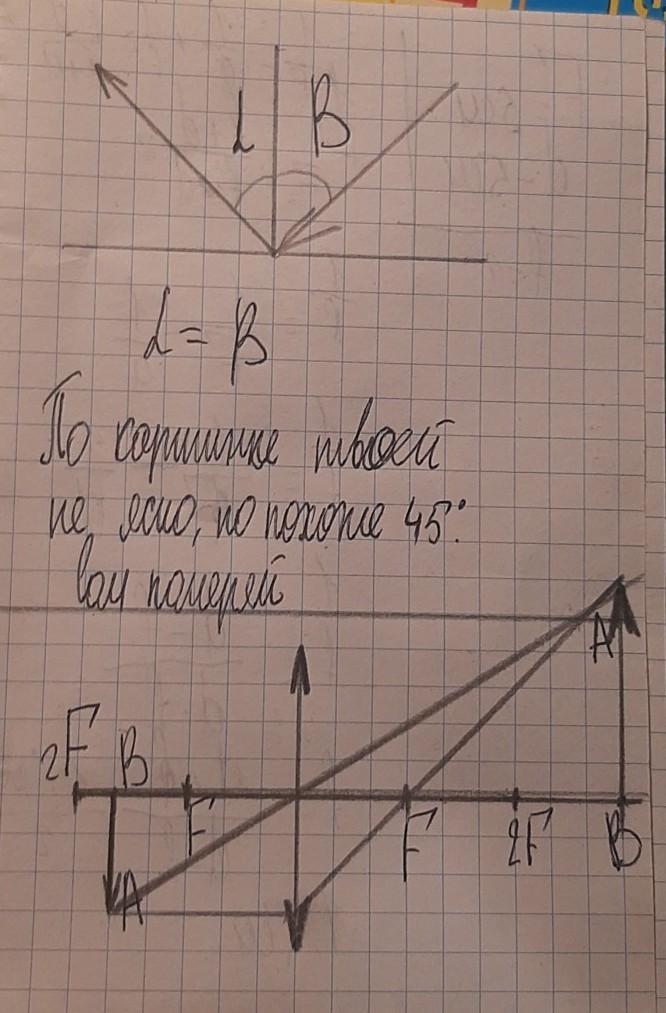 L B
L = B
По картинке твоей
не ясно, но похоже 45°.
Сам померяй
A
2F B
F F 2F B
A